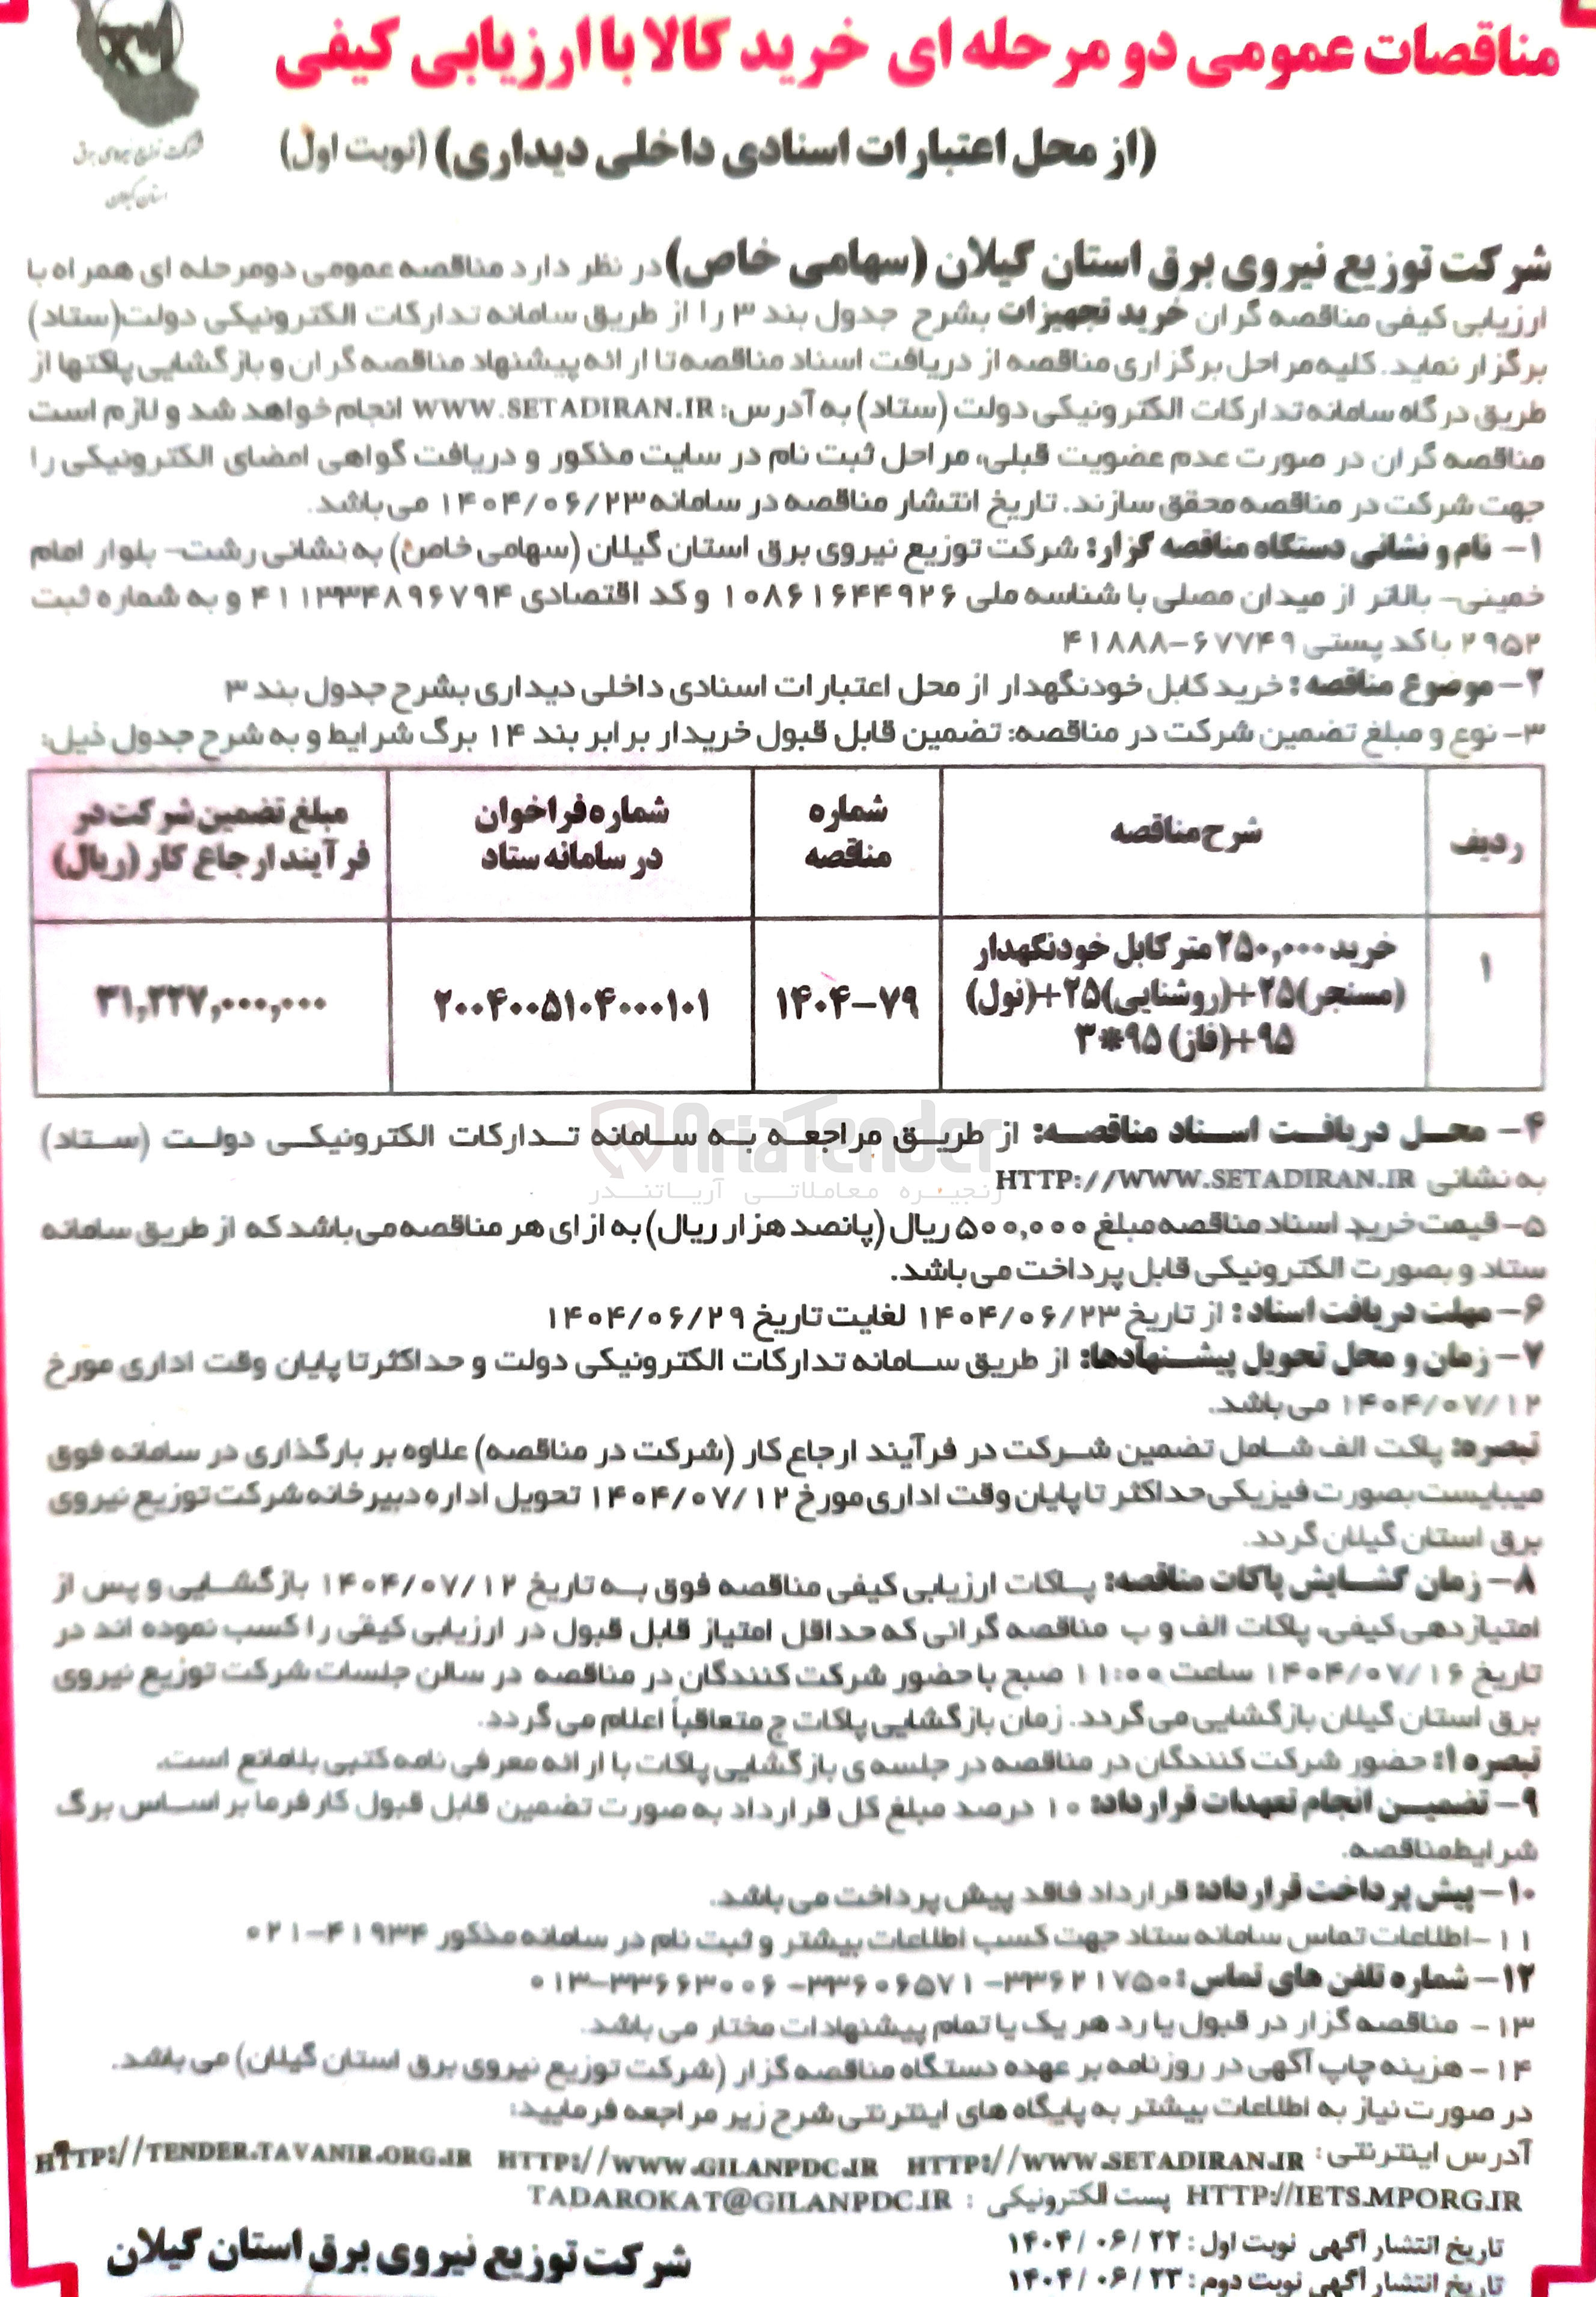 مناقصات عمومی دو مرحله ای خرید کالا با ارزیابی کیفی
(از محل اعتبارات اسنادی داخلی دیداری) (نوبت اول)
شرکت توزیع نیروی برق
استان گیلان
شرکت توزیع نیروی برق استان گیلان (سهامی خاص) در نظر دارد مناقصه عمومی دومرحله ای همراه با
ارزیابی کیفی مناقصه گران خرید تجهیزات بشرح جدول بند ۳ را از طریق سامانه تدارکات الکترونیکی دولت(ستاد)
برگزار نماید. کلیه مراحل برگزاری مناقصه از دریافت اسناد مناقصه تا ارائه پیشنهاد مناقصه گران و بازگشایی پاکتها از
طریق درگاه سامانه تدارکات الکترونیکی دولت (ستاد) به آدرس: WWW.SETADIRAN.IR انجام خواهد شد و لازم است
مناقصه گران در صورت عدم عضویت قبلی، مراحل ثبت نام در سایت مذکور و دریافت گواهی امضای الکترونیکی را
جهت شرکت در مناقصه محقق سازند. تاریخ انتشار مناقصه در سامانه ۱۴۰۴/۰۶/۲۳ می باشد.
۱- نام و نشانی دستگاه مناقصه گزار: شرکت توزیع نیروی برق استان گیلان (سهامی خاص) به نشانی رشت- بلوار امام
خمینی- بالاتر از میدان مصلی با شناسه ملی ۱۰۸۶۱۶۴۴۹۲۶ و کد اقتصادی ۴۱۱۳۳۴۸۹۶۷۹۴ و به شماره ثبت
۲۹۵۲ با کد پستی ۶۷۷۴۹-۴۱۸۸۸
۲- موضوع مناقصه : خرید کابل خودنگهدار از محل اعتبارات اسنادی داخلی دیداری بشرح جدول بند ۳
۳- نوع و مبلغ تضمین شرکت در مناقصه: تضمین قابل قبول خریدار برابر بند ۱۴ برگ شرایط و به شرح جدول ذیل:
ردیف
شرح مناقصه
شماره
مناقصه
شماره فراخوان
در سامانه ستاد
مبلغ تضمین شرکت در
فرآیند ارجاع کار (ریال)
۱
خرید ۲۵۰,۰۰۰ متر کابل خودنگهدار
(مسنجر)۲۵+(روشنایی)۲۵+(نول)
۹۵+(فاز) ۹۵*۳
۱۴۰۴-۷۹
۲۰۰۴۰۰۵۱۰۴۰۰۰۱۰۱
۳۱,۲۲۷,۰۰۰,۰۰۰
AriaTender
زنجیره معاملاتی آریاتندر
۴- محل دریافت اسناد مناقصه: از طریق مراجعه به سامانه تدارکات الکترونیکی دولت (ستاد)
به نشانی HTTP://WWW.SETADIRAN.IR
۵- قیمت خرید اسناد مناقصه مبلغ ۵۰۰,۰۰۰ ریال (پانصد هزار ریال) به ازای هر مناقصه می باشد که از طریق سامانه
ستاد و بصورت الکترونیکی قابل پرداخت می باشد.
۶- مهلت دریافت اسناد : از تاریخ ۱۴۰۴/۰۶/۲۳ لغایت تاریخ ۱۴۰۴/۰۶/۲۹
۷- زمان و محل تحویل پیشنهادها: از طریق سامانه تدارکات الکترونیکی دولت و حداکثر تا پایان وقت اداری مورخ
۱۴۰۴/۰۷/۱۲ می باشد.
تبصره: پاکت الف شامل تضمین شرکت در فرآیند ارجاع کار (شرکت در مناقصه) علاوه بر بارگذاری در سامانه فوق
میبایست بصورت فیزیکی حداکثر تا پایان وقت اداری مورخ ۱۴۰۴/۰۷/۱۲ تحویل اداره دبیرخانه شرکت توزیع نیروی
برق استان گیلان گردد.
۸- زمان گشایش پاکات مناقصه: پاکات ارزیابی کیفی مناقصه فوق به تاریخ ۱۴۰۴/۰۷/۱۲ بازگشایی و پس از
امتیازدهی کیفی، پاکات الف و ب مناقصه گرانی که حداقل امتیاز قابل قبول در ارزیابی کیفی را کسب نموده اند در
تاریخ ۱۴۰۴/۰۷/۱۶ ساعت ۱۱:۰۰ صبح با حضور شرکت کنندگان در مناقصه در سالن جلسات شرکت توزیع نیروی
برق استان گیلان بازگشایی می گردد. زمان بازگشایی پاکات ج متعاقباً اعلام می گردد.
تبصره ۱: حضور شرکت کنندگان در مناقصه در جلسه ی بازگشایی پاکات با ارائه معرفی نامه کتبی بلامانع است.
۹- تضمین انجام تعهدات قرارداد: ۱۰ درصد مبلغ کل قرارداد به صورت تضمین قابل قبول کارفرما بر اساس برگ
شرایط مناقصه.
۱۰- پیش پرداخت قرارداد: قرارداد فاقد پیش پرداخت می باشد.
۱۱- اطلاعات تماس سامانه ستاد جهت کسب اطلاعات بیشتر و ثبت نام در سامانه مذکور ۴۱۹۳۴-۰۲۱
۱۲- شماره تلفن های تماس : ۳۳۶۲۱۷۵۰- ۳۳۶۰۶۵۷۱- ۳۳۶۶۳۰۰۶-۰۱۳
۱۳- مناقصه گزار در قبول یا رد هر یک یا تمام پیشنهادات مختار می باشد.
۱۴- هزینه چاپ آگهی در روزنامه بر عهده دستگاه مناقصه گزار (شرکت توزیع نیروی برق استان گیلان) می باشد.
در صورت نیاز به اطلاعات بیشتر به پایگاه های اینترنتی شرح زیر مراجعه فرمایید:
آدرس اینترنتی: HTTP://WWW.SETADIRAN.IR HTTP://WWW.GILANPDC.IR HTTP://TENDER.TAVANIR.ORG.IR
HTTP://IETS.MPORG.IR پست الکترونیکی : TADAROKAT@GILANPDC.IR
تاریخ انتشار آگهی نوبت اول : ۱۴۰۴/۰۶/۲۲
تاریخ انتشار آگهی نوبت دوم : ۱۴۰۴/۰۶/۲۳
شرکت توزیع نیروی برق استان گیلان